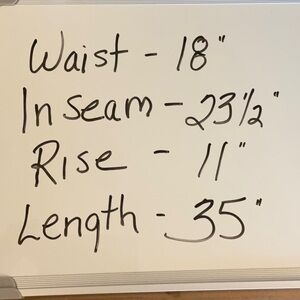 Waist - 18"
Inseam - 23 1/2"
Rise - 11"
Length - 35"